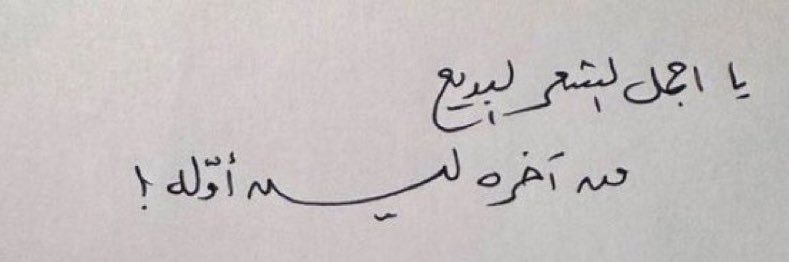 يا اجمل الشعر البديع
من آخره ليـــن أوّله !